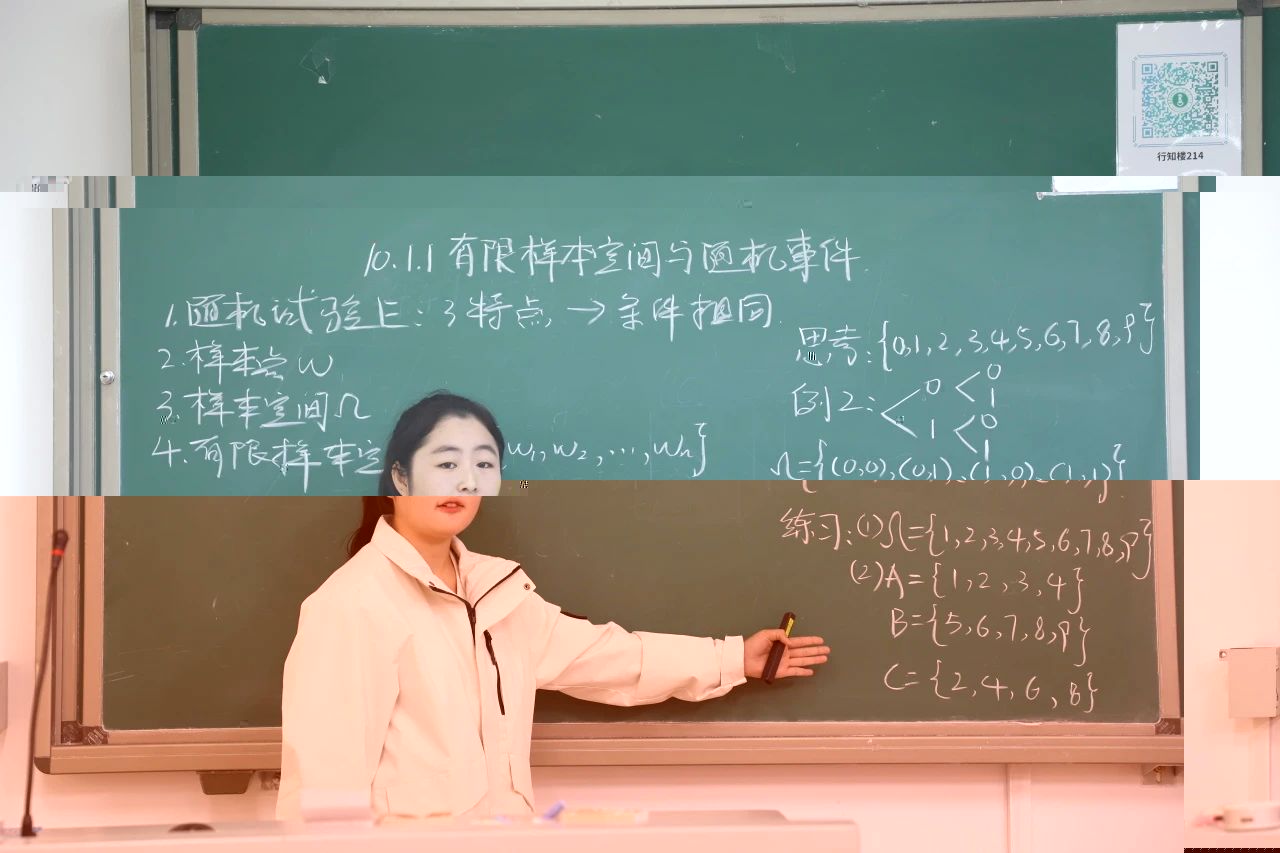 行知楼214
10.1.1 有限样本空间与随机事件
1.随机试验E:3特点→条件相同
2.样本点w
3.样本空间Ω
4.有限样本空
w₁,w₂,…,wₙ}
思考:{0,1,2,3,4,5,6,7,8,9}
例2:
0 0 1
1 0 1
Ω={(0,0),(0,1),(1,0),(1,1)}
练习:(1)Ω={1,2,3,4,5,6,7,8,9}
(2)A={1,2,3,4}
B={5,6,7,8,9}
C={2,4,6,8}